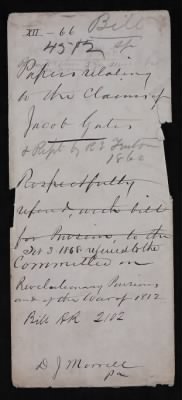 XII - 66 Bill
4582
Papers relating
to the Claims of
Jacob Gates
& Rept by R E Fenton
1860
Respectfully
referred with bill
for Pension to the
Feb 3 1868 referred to the
Committee on
Revolutionary Pensions
and of the War of 1812
Bill HR 2182
D J Morrell
Pa